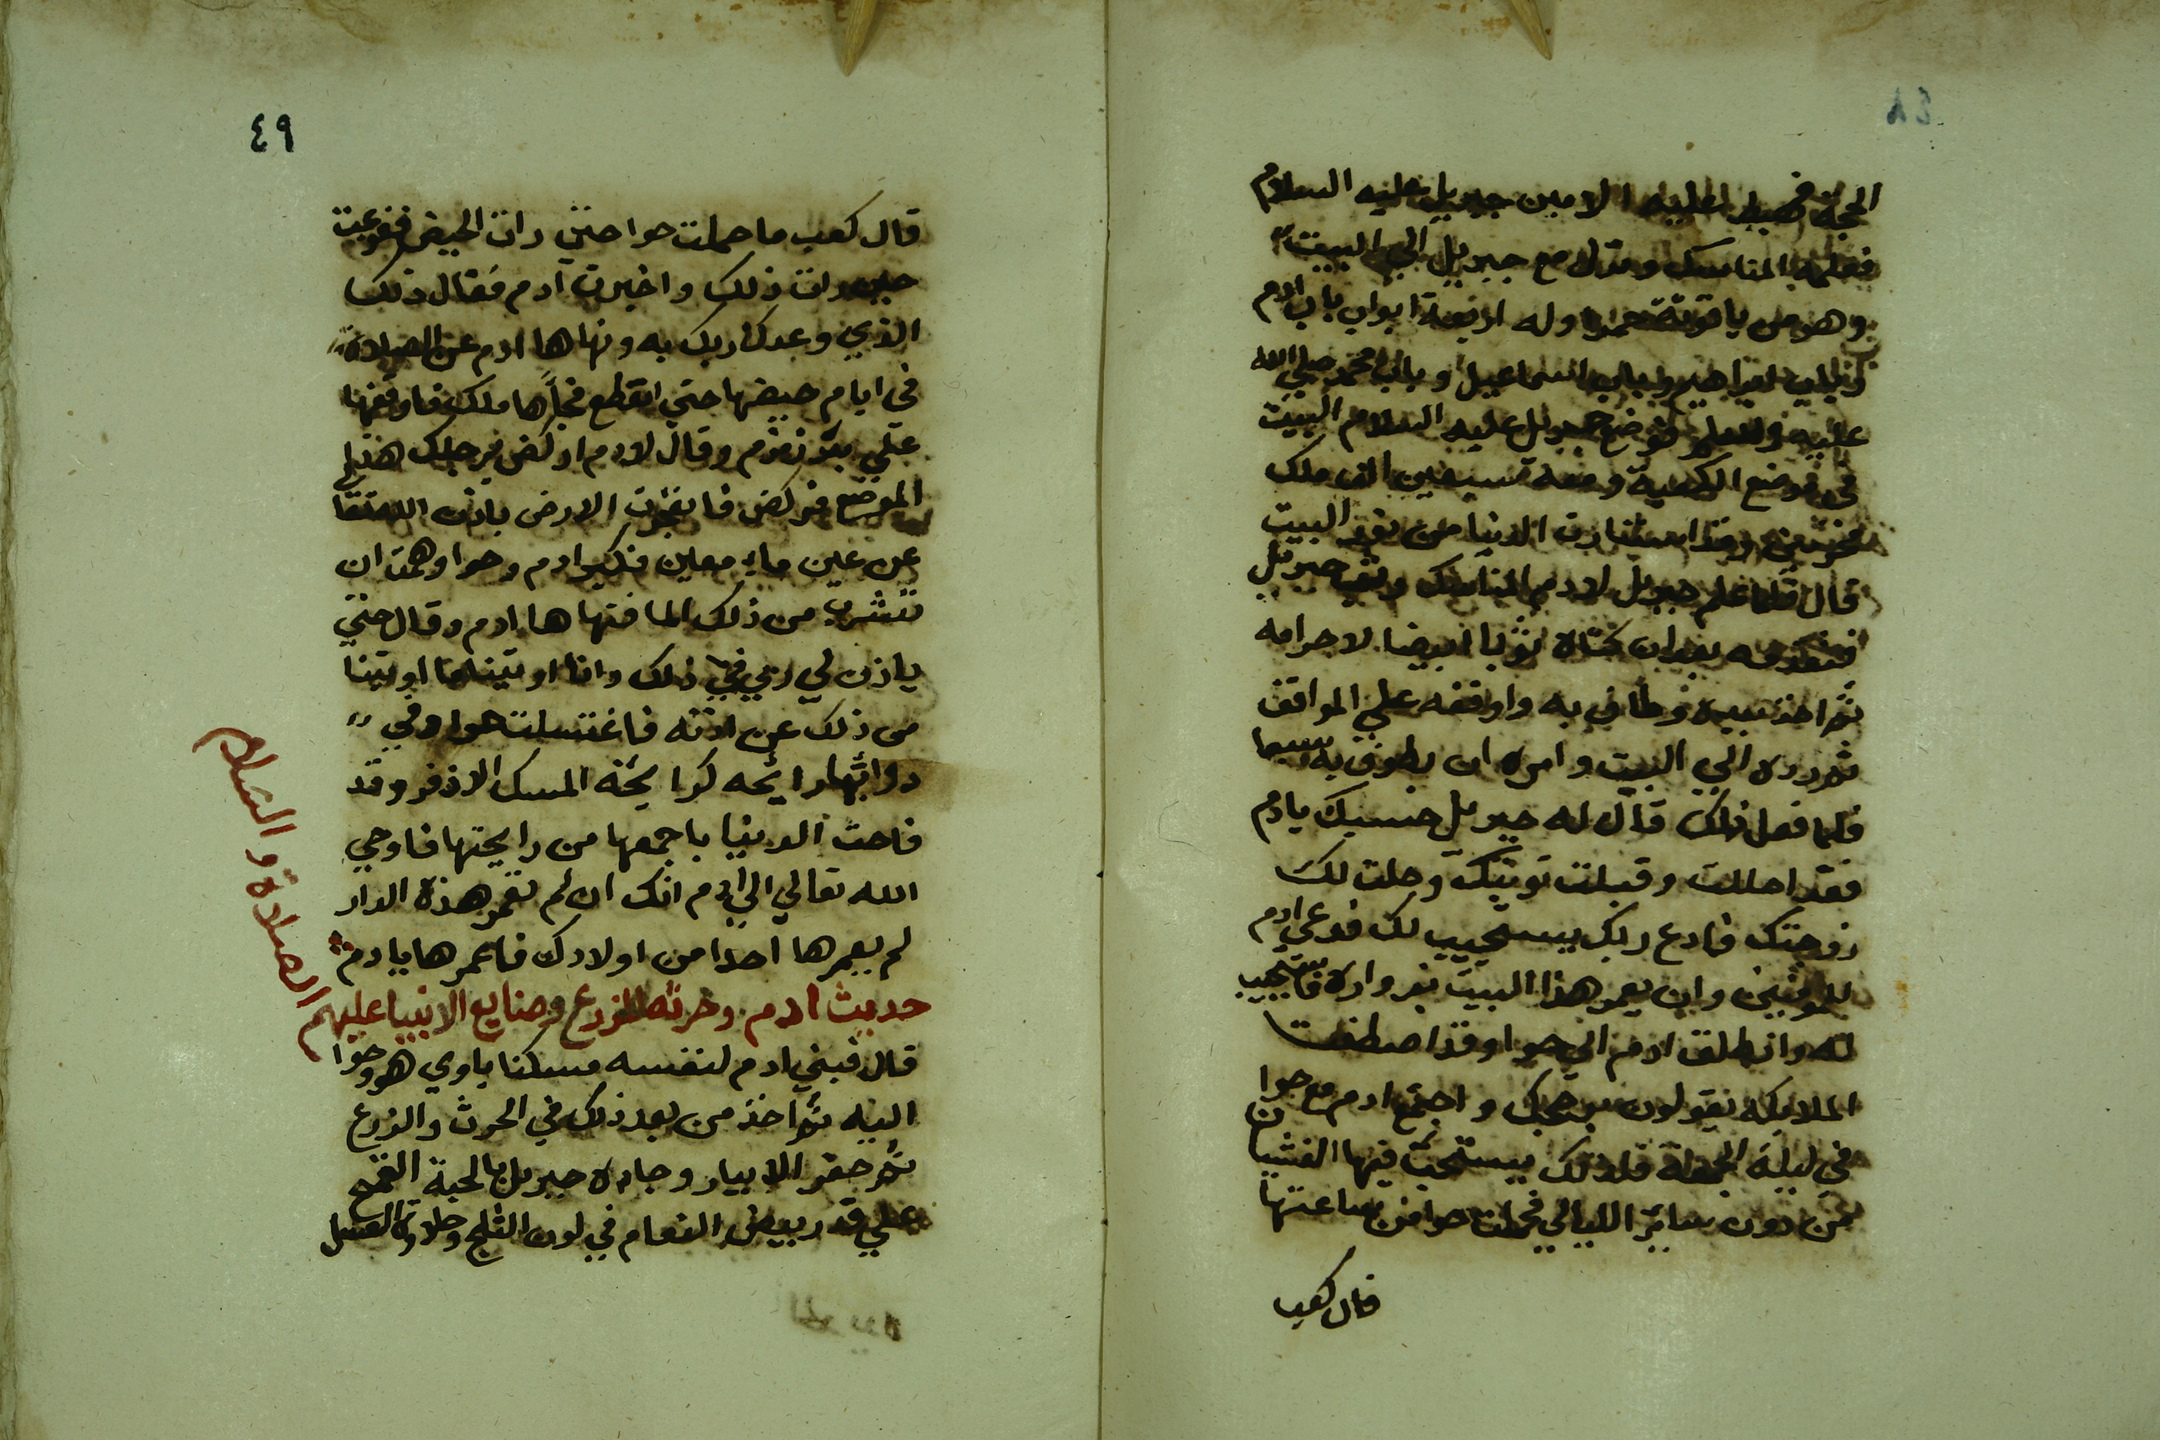 ٤٨
الحجة فهبط اليه الامين جبريل عليه السلام
فعلمه المناسك ونزل مع جبريل الي البيت
وهو من ياقوتة حمرا وله اربعة ابواب باب ادم
وباب ابراهيم وباب اسماعيل وباب محمد صلي الله
عليه وسلم فوضع جبريل عليه السلام البيت
في موضع الكعبة ومعه سبعين الف ملك
وقد استنارت الدنيا من نور البيت
قال فلما علم جبريل لادم المناسك وبقي جبريل
بعد ان كساه ثوبا ابيضا لاحرامه
ثم اخذ بيده وطاف به واوقفه علي المواقف
ثم رده الي البيت وامره ان يطوف به سبعا
فلما فعل ذلك قال له جبريل حسبك يادم
فقد احللت وقبلت توبتك وحلت لك
زوجتك فادع ربك يستجيب لك فدعي ادم
للمومنين وان يعمر هذا البيت بزواره فاستجيب
له وانطلق ادم الي حوا وقد اصطفت
الملايكة يقولون مرحبك واجتمع ادم مع حوا
في ليلة الجمعة فلذلك يستحب فيها الغشيان
من دون ساير الليالي فحملت حوا من ساعتها
قال كعب
٤٩
قال كعب ما حملت حوا حتي رات الحيض ففزعت
حين رات ذلك واخبرت ادم فقال ذلك
الذي وعدك ربك به ونهاها ادم عن الصلاة
في ايام حيضها حتي انقطع فجاها ملك فاوقفها
علي بير زمزم وقال لادم اركض برجلك هذا
الموضع فركض فانفجرت الارض باذن الله تعا
عن عين ماء معين فكبر ادم وحوا وهمت ان
تشرب من ذلك الما فنهاها ادم وقال حتي
ياذن لي ربي في ذلك وانا
من ذلك عن اذنه فاغتسلت حوا وفي
دوايبها رايحه كرايحة المسك الاذفر وقد
فاحت الدنيا باجمعها من رايحتها فاوحي
الله تعالي الي ادم انك ان لم تعمر هذه الدار
لم يعمرها احدا من اولادك فاعمرها يادم
حديث ادم وحرثه للزرع وصنايع الانبيا عليهم
الصلاة والسلام
قال فبني ادم لنفسه مسكنا ياوي هو وحوا
اليه ثم اخذ من بعد ذلك في الحرث والزرع
ثم حفر الابيار وجاه جبريل بالحبة القمح
علي قدر بيض النعام في لون الثلج وحلاوة العسل